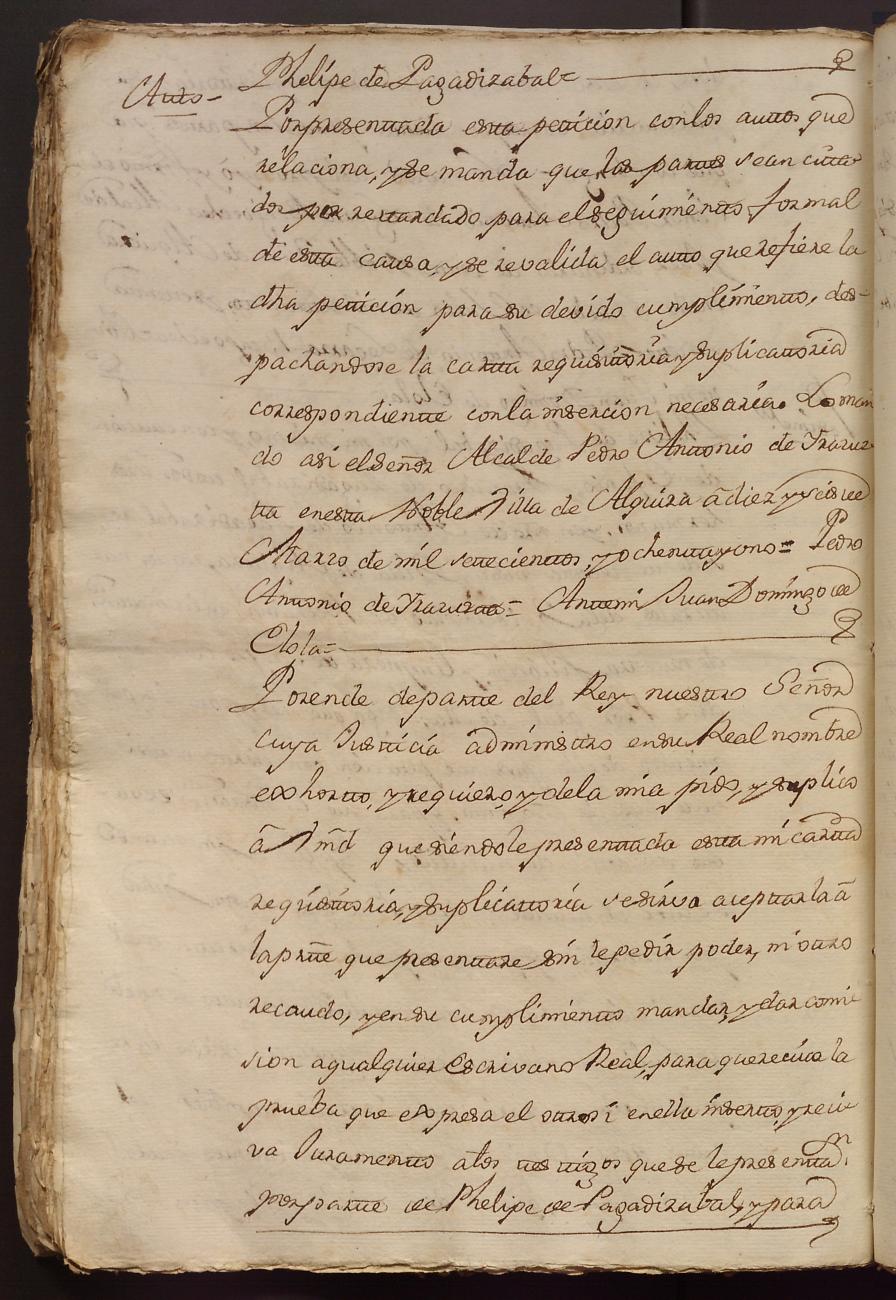 Phelipe de Pagadizabal=
Auto=
Por presentada esta peticion con los autos que
relaciona, y se manda que las partes sean cita
dos por retardado para el seguimiento formal
de esta causa, y se revalida el auto que refiere la
dha peticion para su devido cumplimiento, des-
pachandose la carta requisitoria y suplicatoria
correspondiente con la insercion necesaria. Lo man
do asi el señor Alcalde Pedro Antonio de Yrazuz
ta en esta Noble Villa de Alquiza â diez y seis de
Marzo de mil setecientos, y ochenta y uno= Pedro
Antonio de Yrazuzta= Antemi Juan Domingo de
Elola=
Por ende de parte del Rey nuestro Señor
cuya Justicia administro en su Real nombre
exhorto, y requiero, y de la mia pido, y suplico
â Vmd que siendole presentada esta mi carta
requisitoria, y suplicatoria se sirva aceptarla â
la parte que presentare sin le pedir poder, ni otro
recaudo, y en su cumplimiento mandar, y dar comi
sion a qualquier Escrivano Real, para que reciva la
prueba que expresa el otrosi en ella inserto, y reci
va Juramento a los testigos que se le presentan
por parte de Phelipe de Pagadizabal, y para